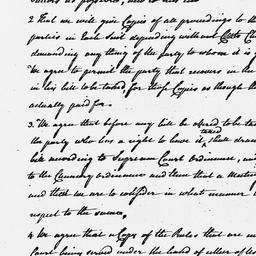 2 That we will give Copies of all proceedings to the
parties in Each Suit depending without Costs
demanding any thing of the party to whom it is g
We agree to permit the party that recovers in the
in his bill to be taxed for those Copies as though the
actually paid for.
3. We agree that before any bill be offered to be
taxed
the party who has a right to have it, shall draw
bill according to Supream Court Ordinance, and
to the Chancery ordinance and then that a
and that we are to consider in what manner
respect to the same,
4 We agree that a Copy of the Rules that are m
Court being served under the hand of either of